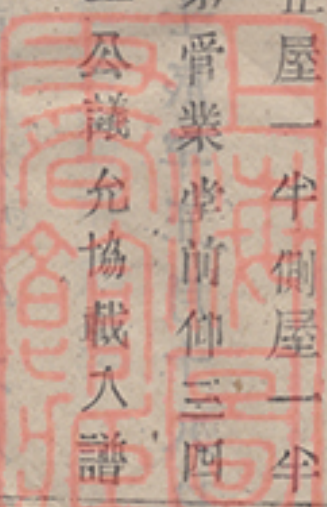 正屋一半側屋一半
管業坐前仰三四
公議允協載入譜